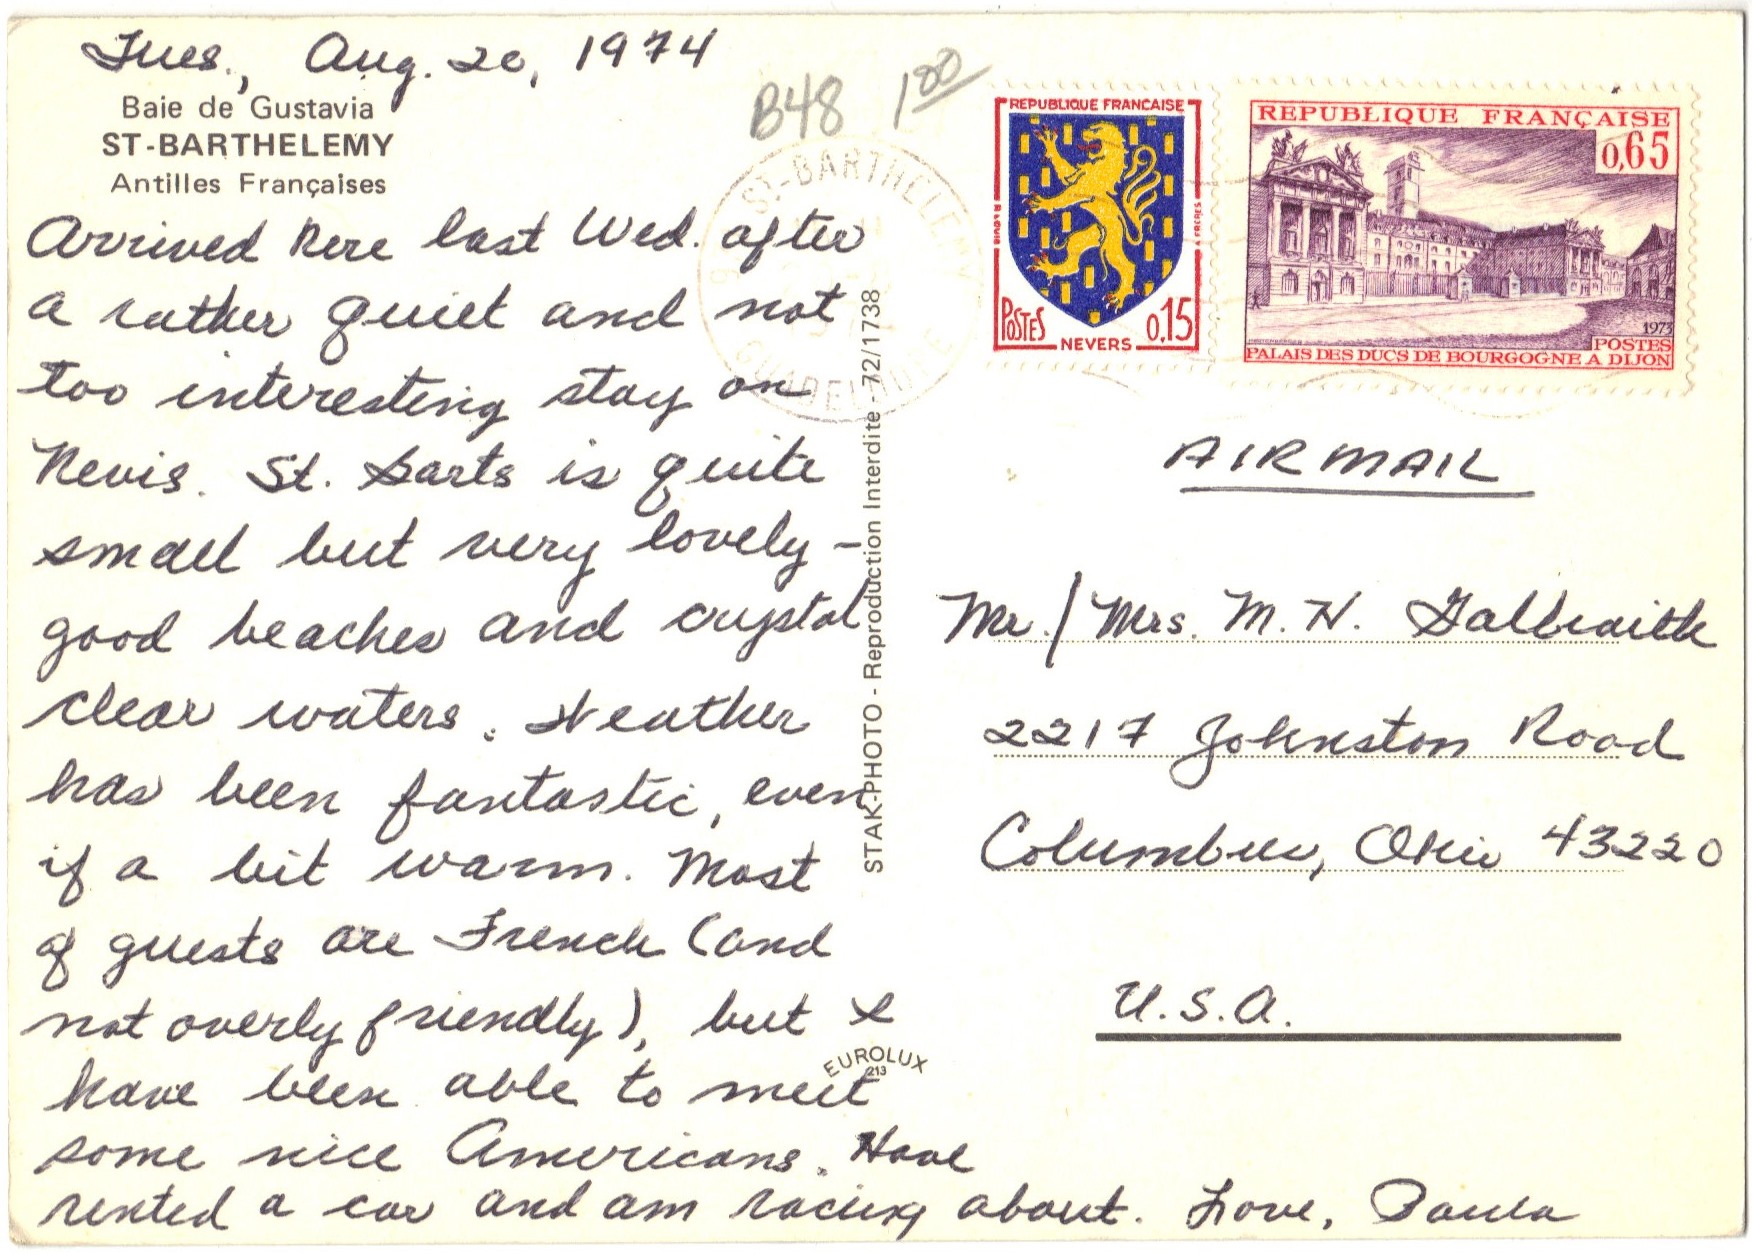 Tues., Aug. 20, 1974
Baie de Gustavia
ST-BARTHELEMY
Antilles Françaises
Arrived here last Wed. after
a rather quiet and not
too interesting stay on
Nevis. St. Barts is quite
small but very lovely -
good beaches and crystal
clear waters. Weather
has been fantastic, even
if a bit warm. Most
of guests are French (and
not overly friendly), but I
have been able to meet
some nice Americans. Have
rented a car and am racing about. Love, Paula
B48 1.00
ST-BARTHELEMY
GUADELOUPE
STAK-PHOTO - Reproduction Interdite - 72/1738
EUROLUX
213
REPUBLIQUE FRANCAISE
POSTES 0,15
NEVERS
REPUBLIQUE FRANÇAISE
0,65
1973
POSTES
PALAIS DES DUCS DE BOURGOGNE A DIJON
AIRMAIL
Mr./Mrs. M. H. Galbraith
2217 Johnston Road
Columbus, Ohio 43220
U.S.A.